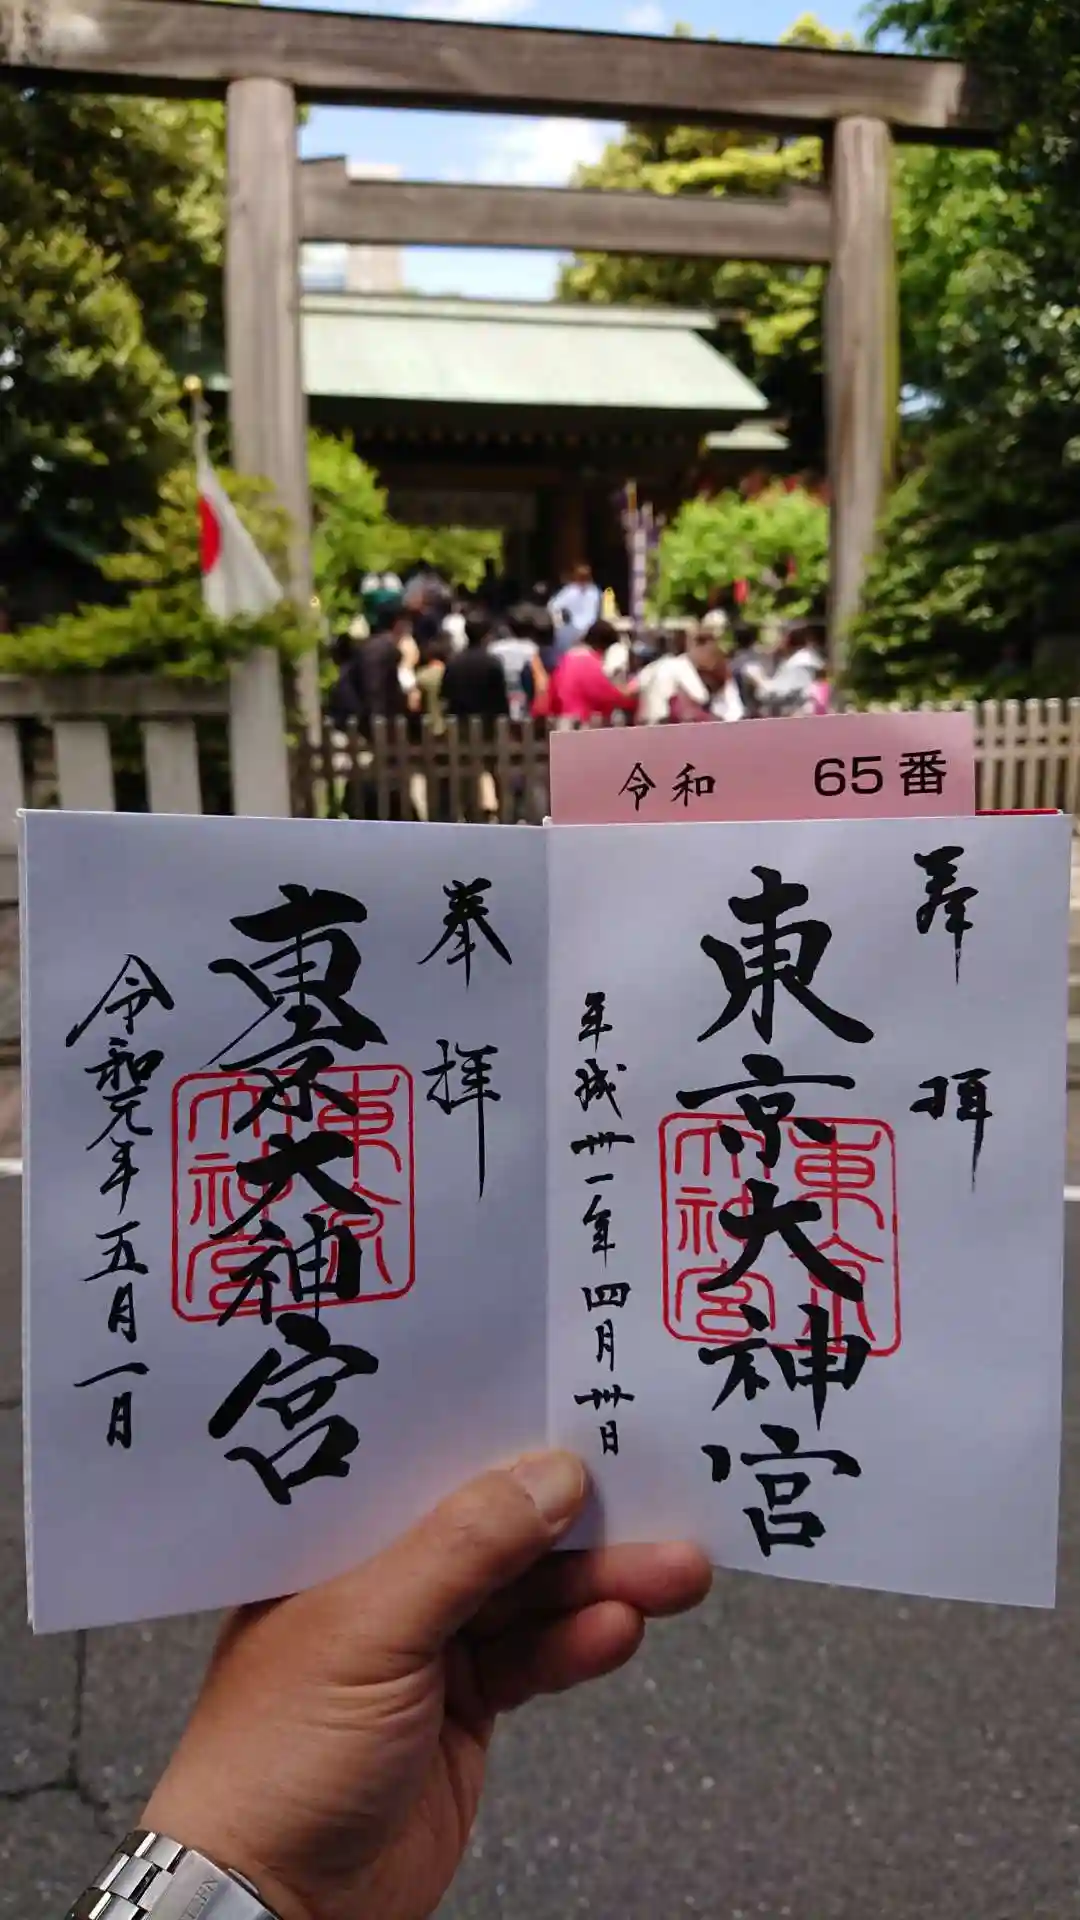 令和 65番
奉拝
東京大神宮
平成卅一年四月卅日
東京大神宮
奉拝
東京大神宮
令和元年五月一日
東京大神宮